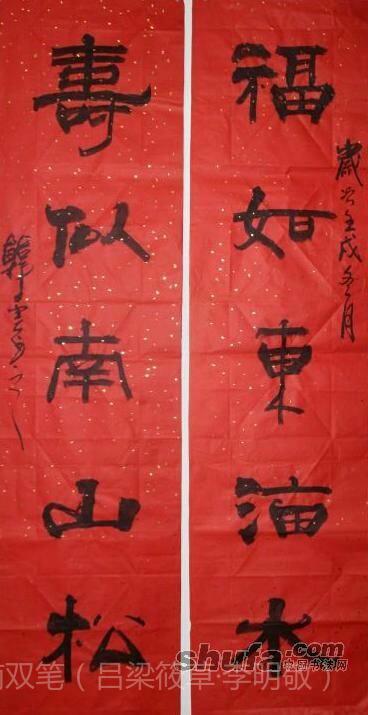 福如東海水
歲次壬戌冬月
壽似南山松
双笔（吕梁筱草·李明敬）
shufa.com
中国书法网